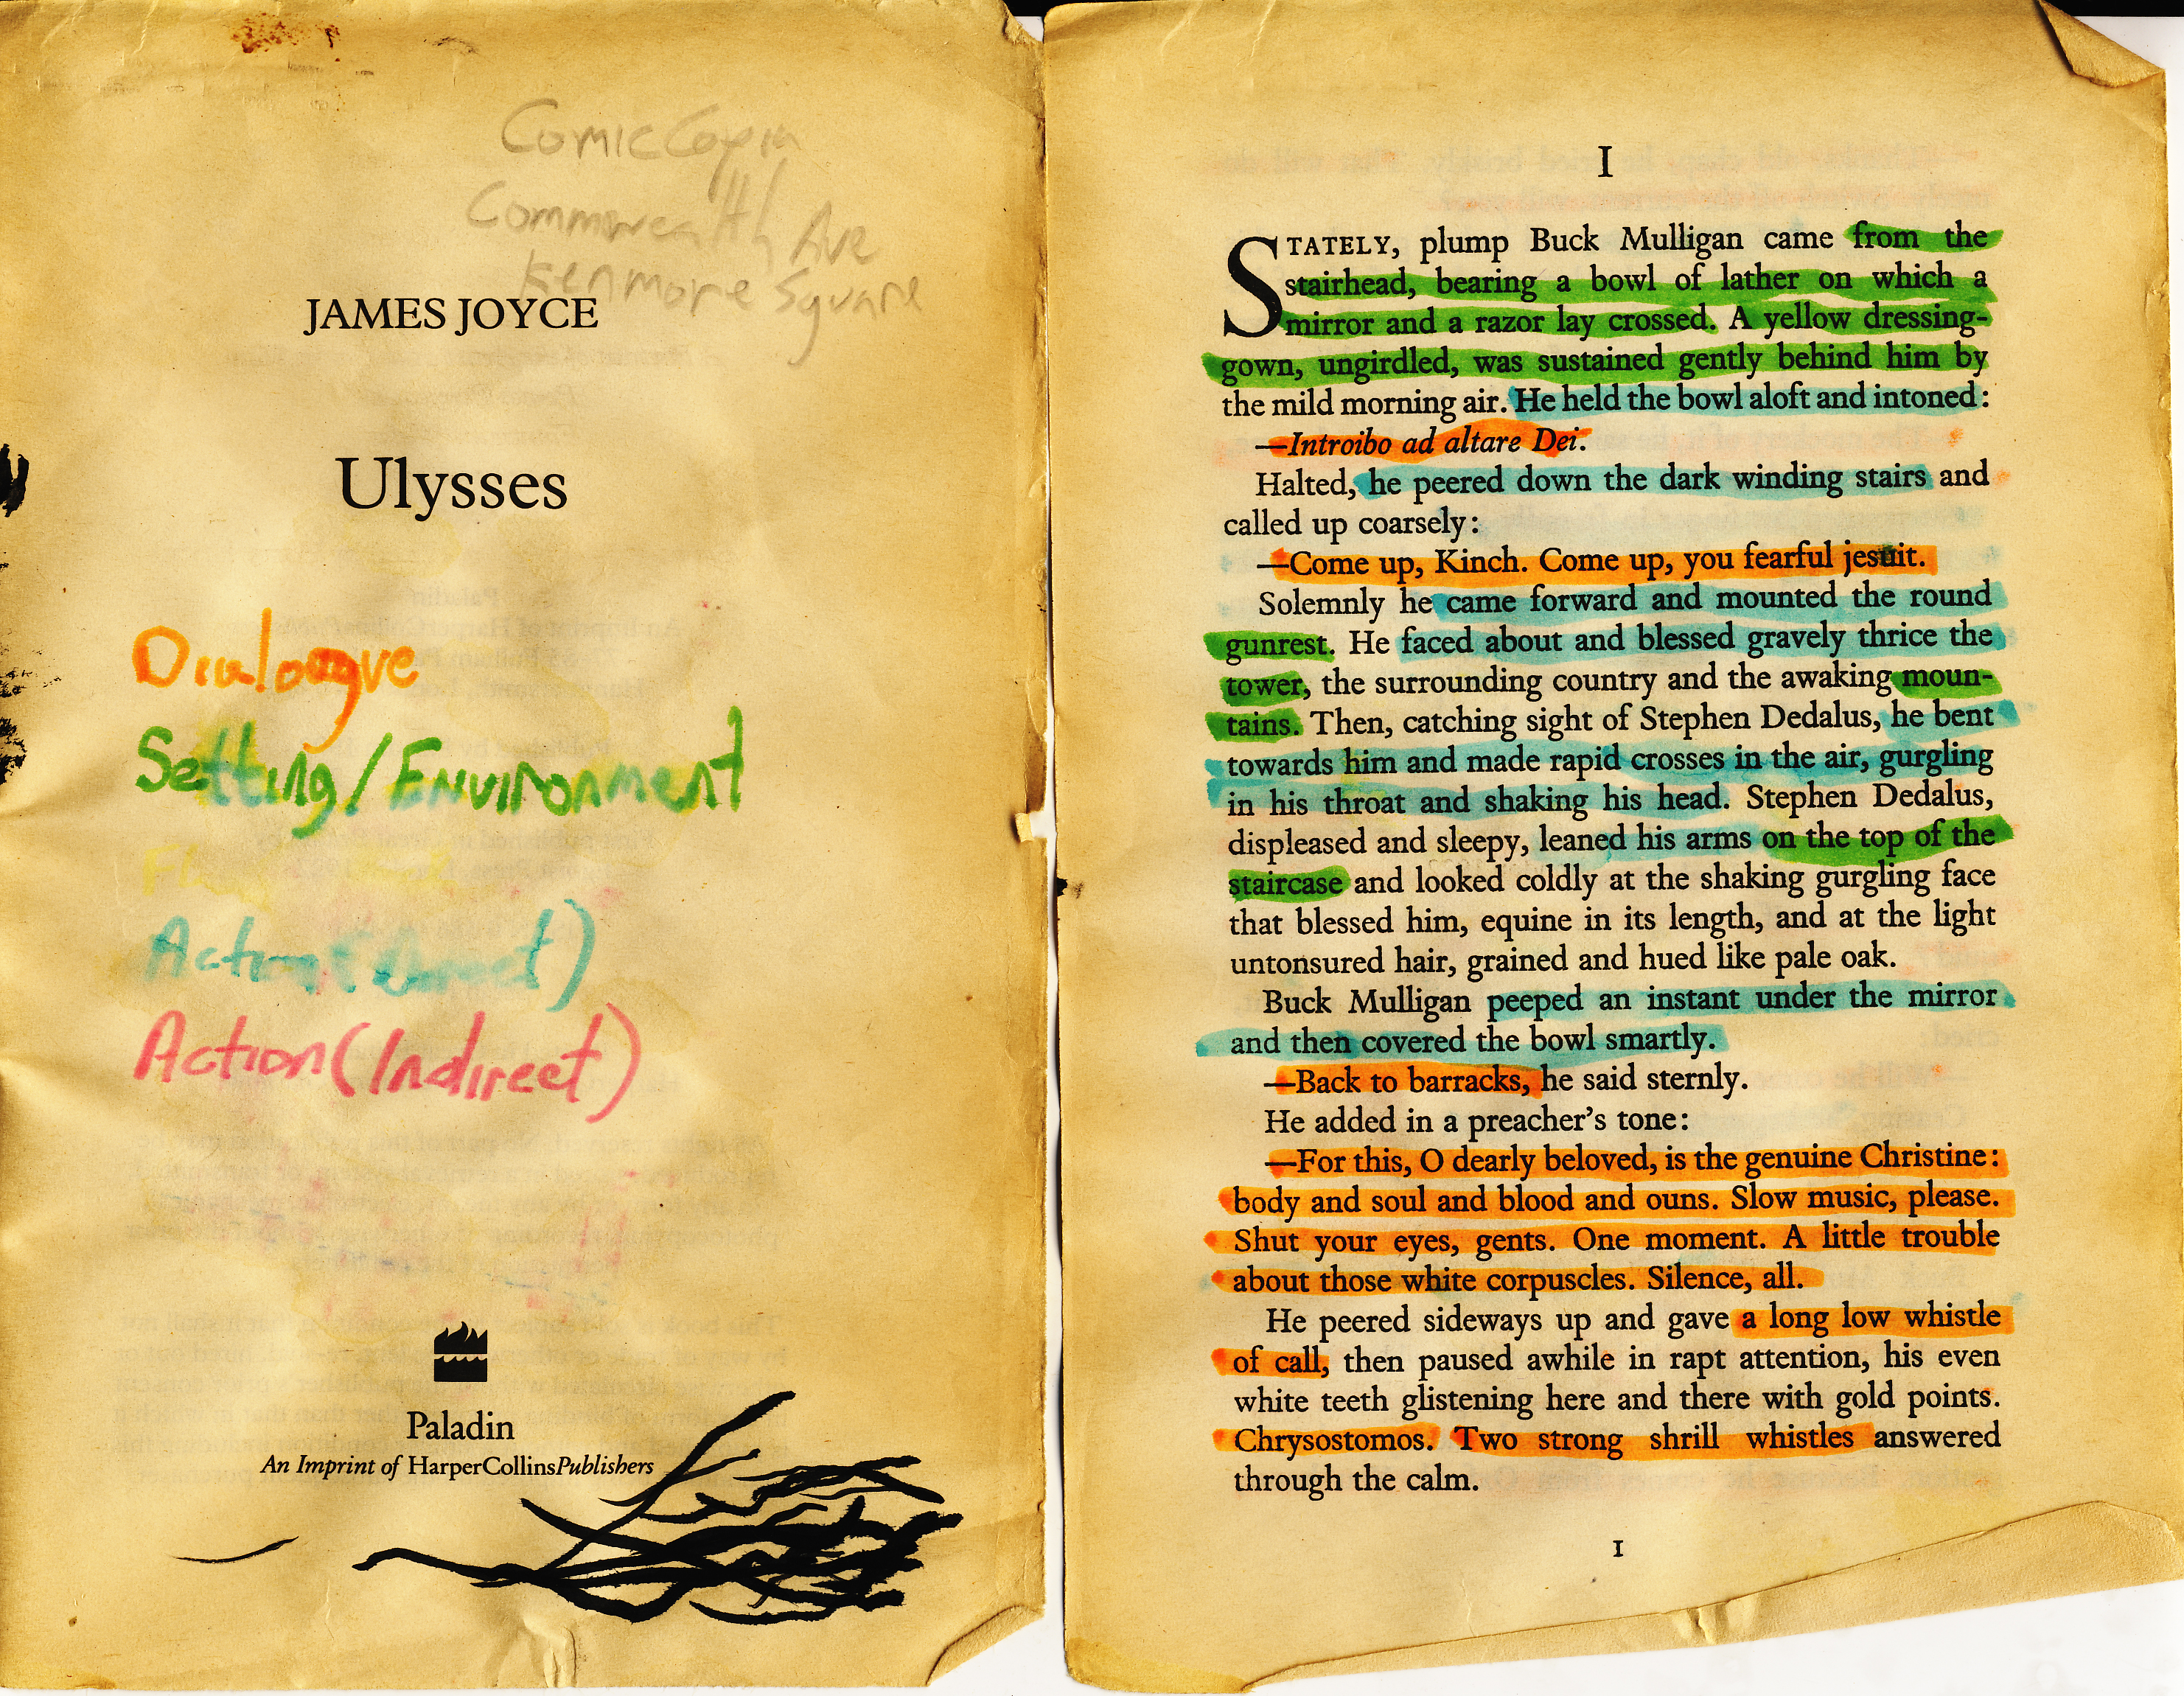 Comic Copia
Commonwealth Ave
Kenmore Square
JAMES JOYCE
Ulysses
Dialogue
Setting/Environment
Action (Direct)
Action (Indirect)
Paladin
An Imprint of HarperCollinsPublishers
I
STATELY, plump Buck Mulligan came from the
stairhead, bearing a bowl of lather on which a
mirror and a razor lay crossed. A yellow dressing-
gown, ungirdled, was sustained gently behind him by
the mild morning air. He held the bowl aloft and intoned:
—Introibo ad altare Dei.
Halted, he peered down the dark winding stairs and
called up coarsely:
—Come up, Kinch. Come up, you fearful jesuit.
Solemnly he came forward and mounted the round
gunrest. He faced about and blessed gravely thrice the
tower, the surrounding country and the awaking moun-
tains. Then, catching sight of Stephen Dedalus, he bent
towards him and made rapid crosses in the air, gurgling
in his throat and shaking his head. Stephen Dedalus,
displeased and sleepy, leaned his arms on the top of the
staircase and looked coldly at the shaking gurgling face
that blessed him, equine in its length, and at the light
untonsured hair, grained and hued like pale oak.
Buck Mulligan peeped an instant under the mirror
and then covered the bowl smartly.
—Back to barracks, he said sternly.
He added in a preacher's tone:
—For this, O dearly beloved, is the genuine Christine:
body and soul and blood and ouns. Slow music, please.
Shut your eyes, gents. One moment. A little trouble
about those white corpuscles. Silence, all.
He peered sideways up and gave a long low whistle
of call, then paused awhile in rapt attention, his even
white teeth glistening here and there with gold points.
Chrysostomos. Two strong shrill whistles answered
through the calm.
I